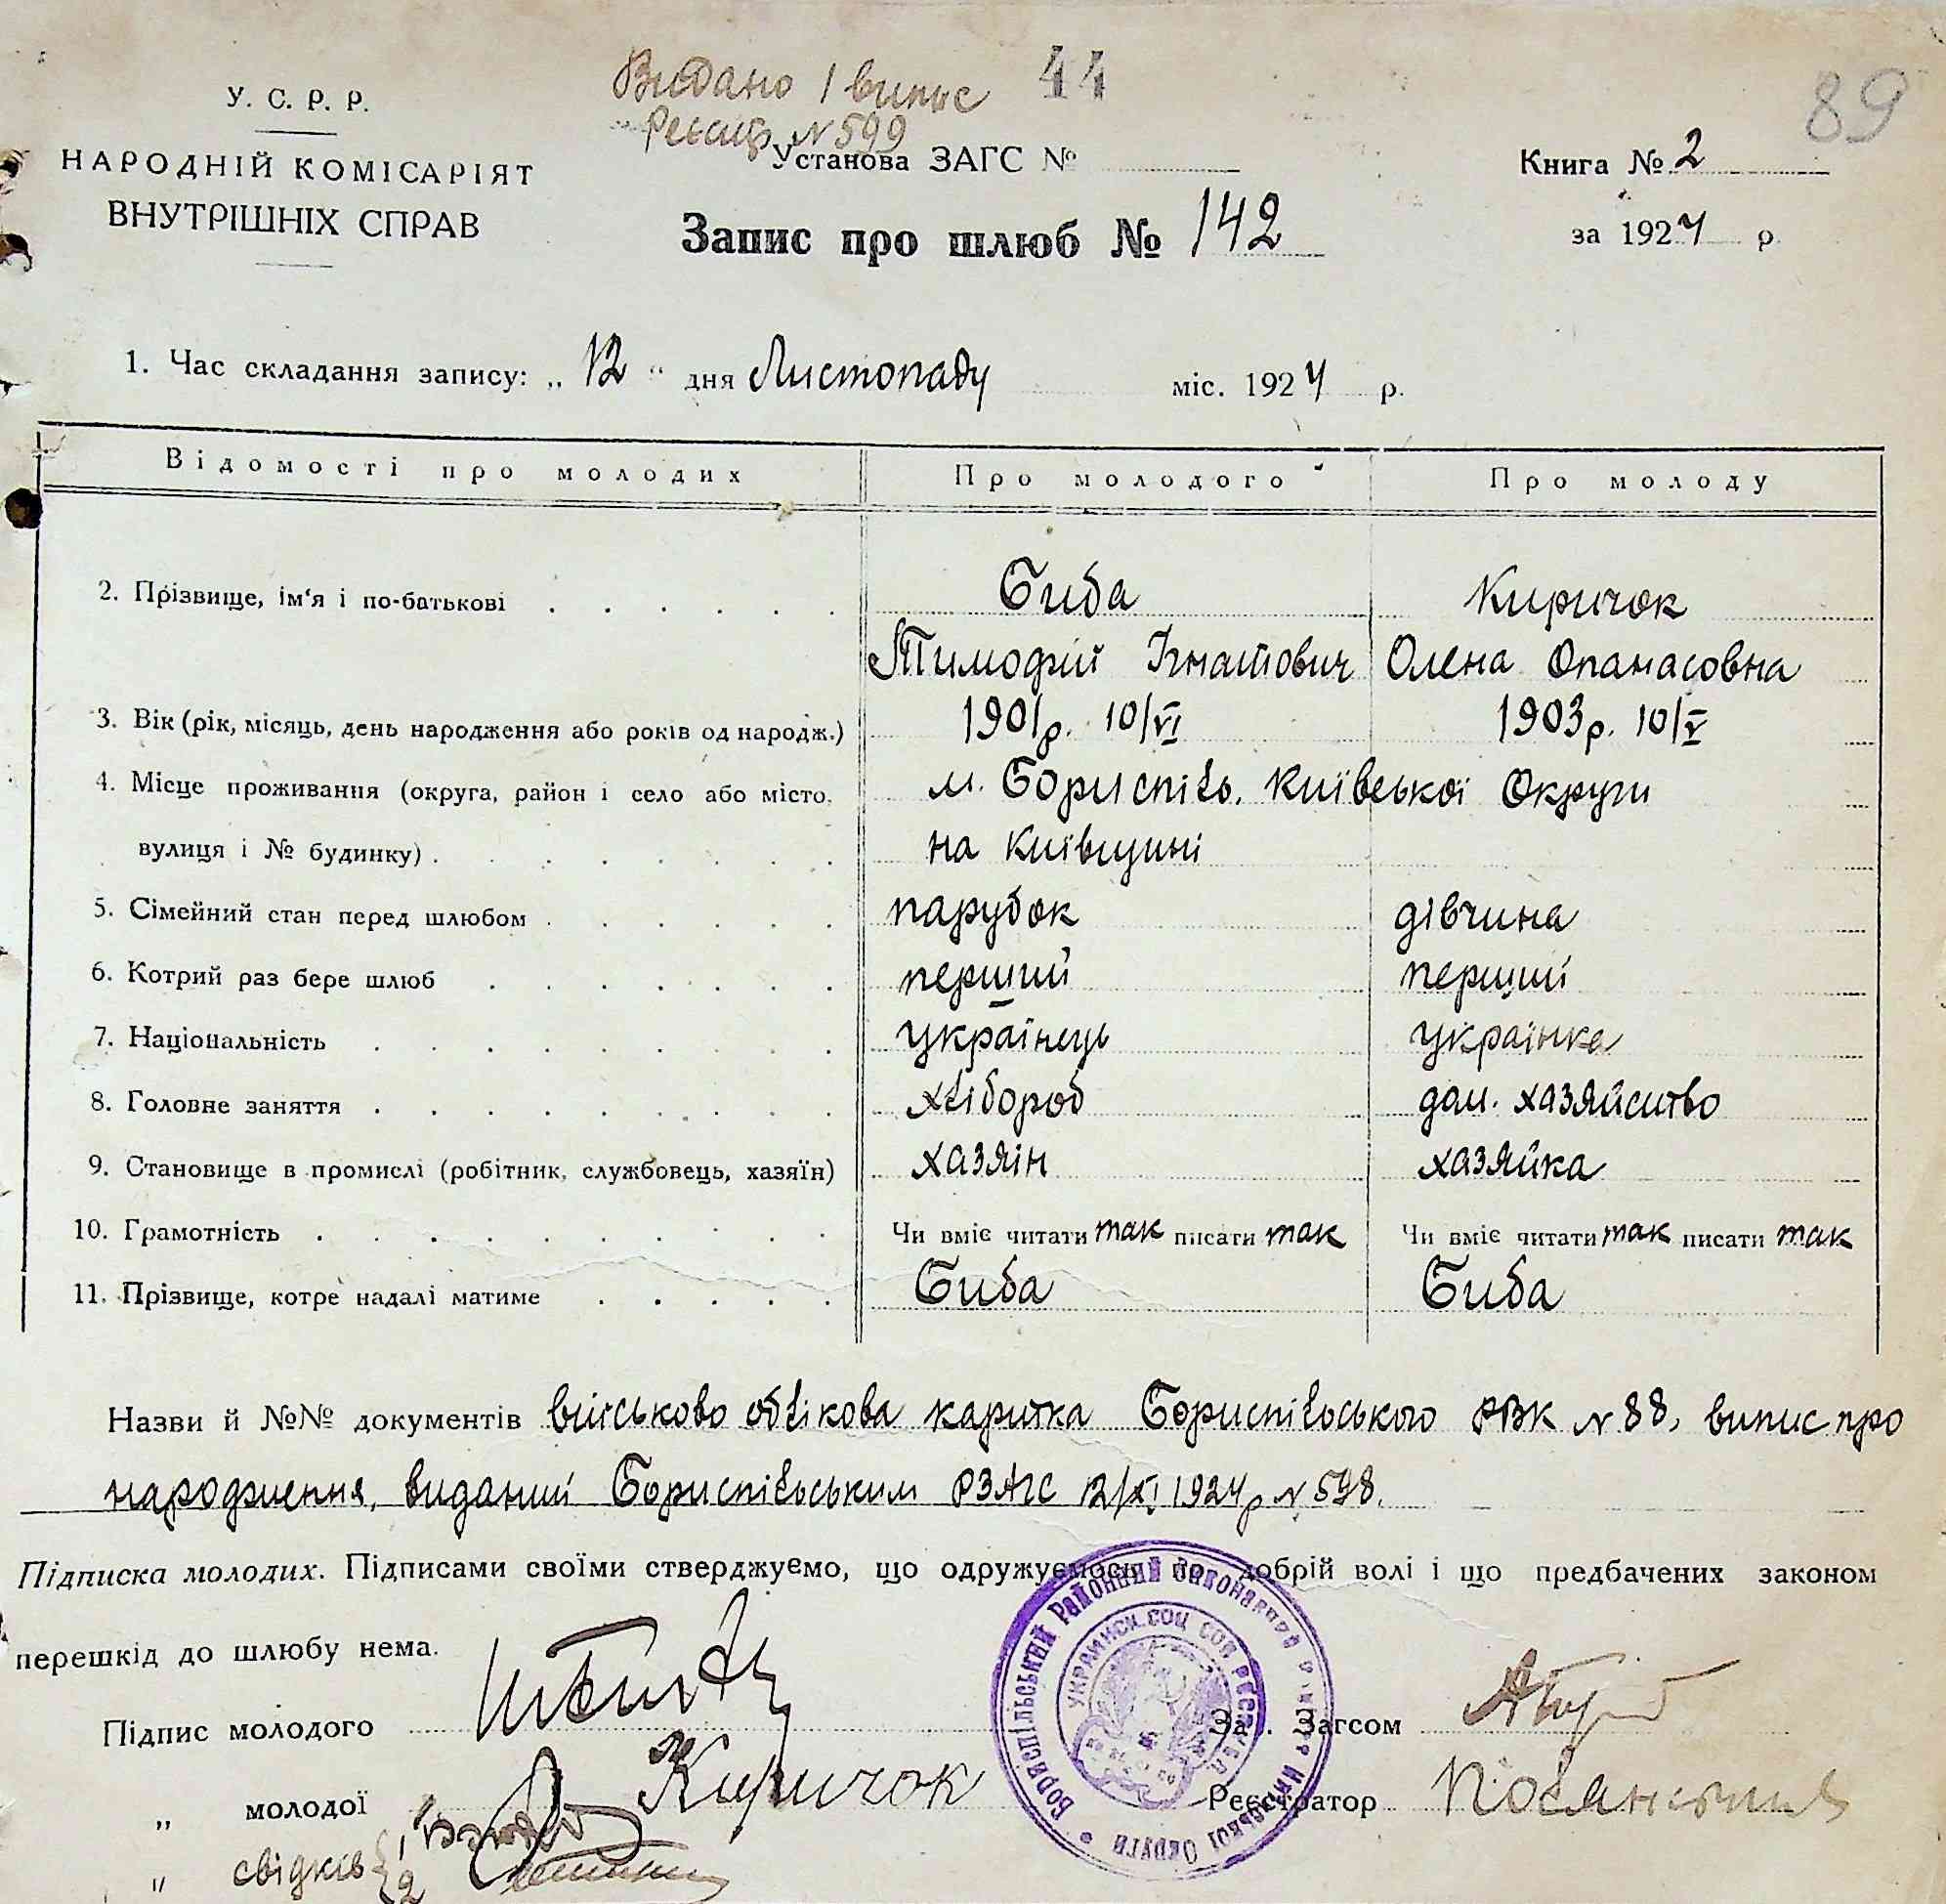 Видано 1 випис 44
89
Реєстр N 599
У. С. Р. Р.
НАРОДНІЙ КОМІСАРІЯТ
ВНУТРІШНІХ СПРАВ
Установа ЗАГС №
Книга № 2
Запис про шлюб № 142
за 1924 р.
1. Час складання запису: „ 12 " дня Листопаду міс. 1924 р.
Відомості про молодих Про молодого Про молоду
2. Прізвище, ім'я і по-батькові Биба Киричок
Тимофій Ігнатович Олена Опанасовна
3. Вік (рік, місяць, день народження або років од народж.) 1901р. 10/VI 1903р. 10/V
4. Місце проживання (округа, район і село або місто, м. Бориспіль, Київської Округи
вулиця і № будинку) на Київщині
5. Сімейний стан перед шлюбом парубок дівчина
6. Котрий раз бере шлюб перший перший
7. Національність українець українка
8. Головне заняття хлібороб дом. хазяйство
9. Становище в промислі (робітник, службовець, хазяїн) хазяін хазяйка
10. Грамотність Чи вміє читати так писати так Чи вміє читати так писати так
11. Прізвище, котре надалі матиме Биба Биба
Назви й №№ документів військово облікова картка Бориспільського РВК N 88, випис про
народження, виданий Бориспільським РЗАГС 12/XI 1924р N 598.
Підписка молодих. Підписами своїми стверджуємо, що одружуємось по добрій волі і що предбачених законом
перешкід до шлюбу нема.
Підпис молодого
Зав. Загсом
„ молодої Киричок
Реєстратор
„ свідків { 1
2
БОРИСПІЛЬСЬКИЙ РАЙОННИЙ ОКРУГИ
УКРАИНСК. СОЦ. СОВ. РЕСПУБЛ.